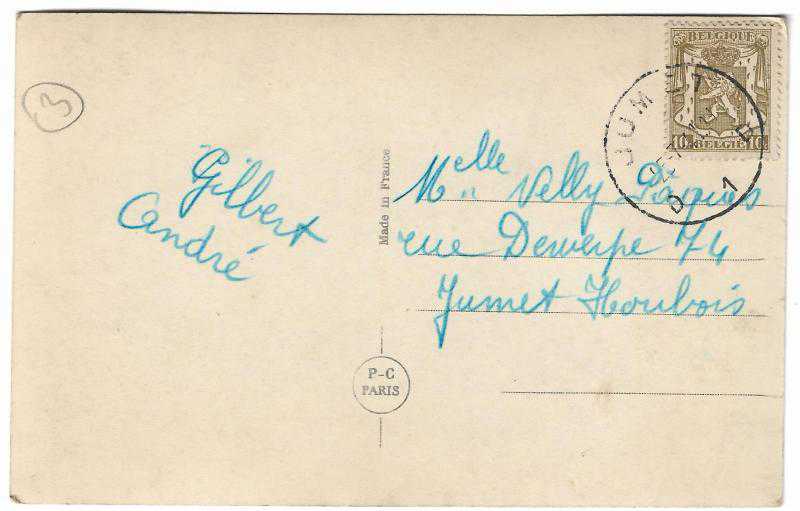 3
Gilbert
André
Made in France
P-C
PARIS
BELGIQUE
10c 10c
BELGIË
JUMET
1
Melle Nelly Pâques
rue Dewerpe 74
Jumet Houbois